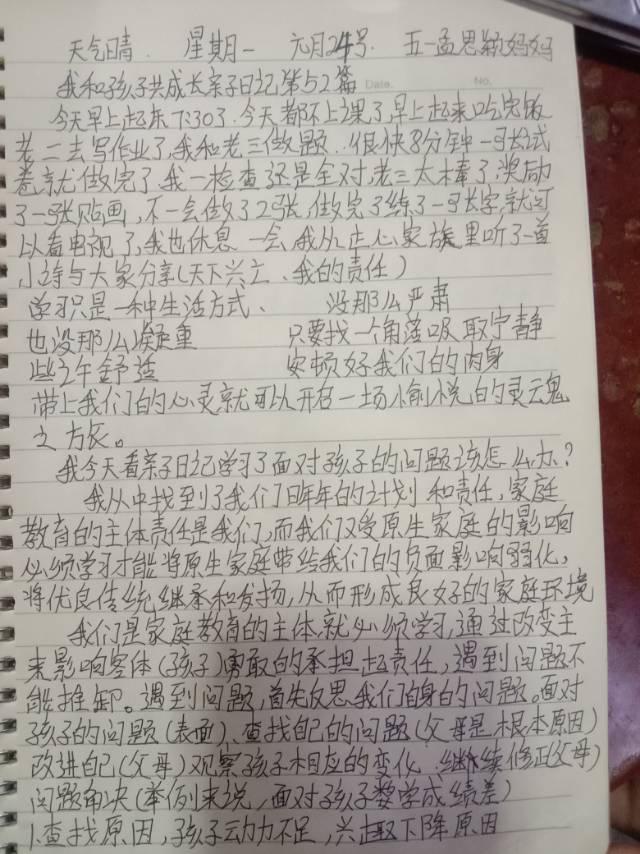 天气晴. 星期一 元月24号. 五一孟思颖妈妈
我和孩子共成长亲子日记第52篇
Date. No.
今天早上起床7:30了.今天都不上课了,早上起来吃完饭
老二去写作业了,我和老三做题.很快8分钟一张试
卷就做完了我一检查还是全对,老三太棒了,奖励
了一张贴画,不一会做了2张,做完了练了一张字,就可
以看电视了,我也休息一会,我从正心家族里听了一首
小诗与大家分享(天下兴立、我的责任)
学习只是一种生活方式、 没那么严肃
也没那么凝重 只要找一个角落吸取宁静
些许舒适 安顿好我们的肉身
带上我们的心灵就可以开启一场愉悦的灵魂
之旅。
我今天看亲子日记学习了面对孩子的问题该怎么办?
我从中找到了我们明年的计划和责任,家庭
教育的主体责任是我们,而我们又受原生家庭的影响
必须学习才能将原生家庭带给我们的负面影响弱化,
将优良传统继承和发扬,从而形成良好的家庭环境
我们是家庭教育的主体,就必须学习,通过改变主
来影响客体(孩子)勇敢的承担起责任,遇到问题不
能推卸。遇到问题,首先反思我们自身的问题。面对
孩子的问题(表面)、查找自己的问题(父母是根本原因)
改进自己(父母)观察孩子相应的变化.继续修正(父母)
问题解决(举例来说,面对孩子数学成绩差)
1.查找原因,孩子动力不足,兴趣下降原因